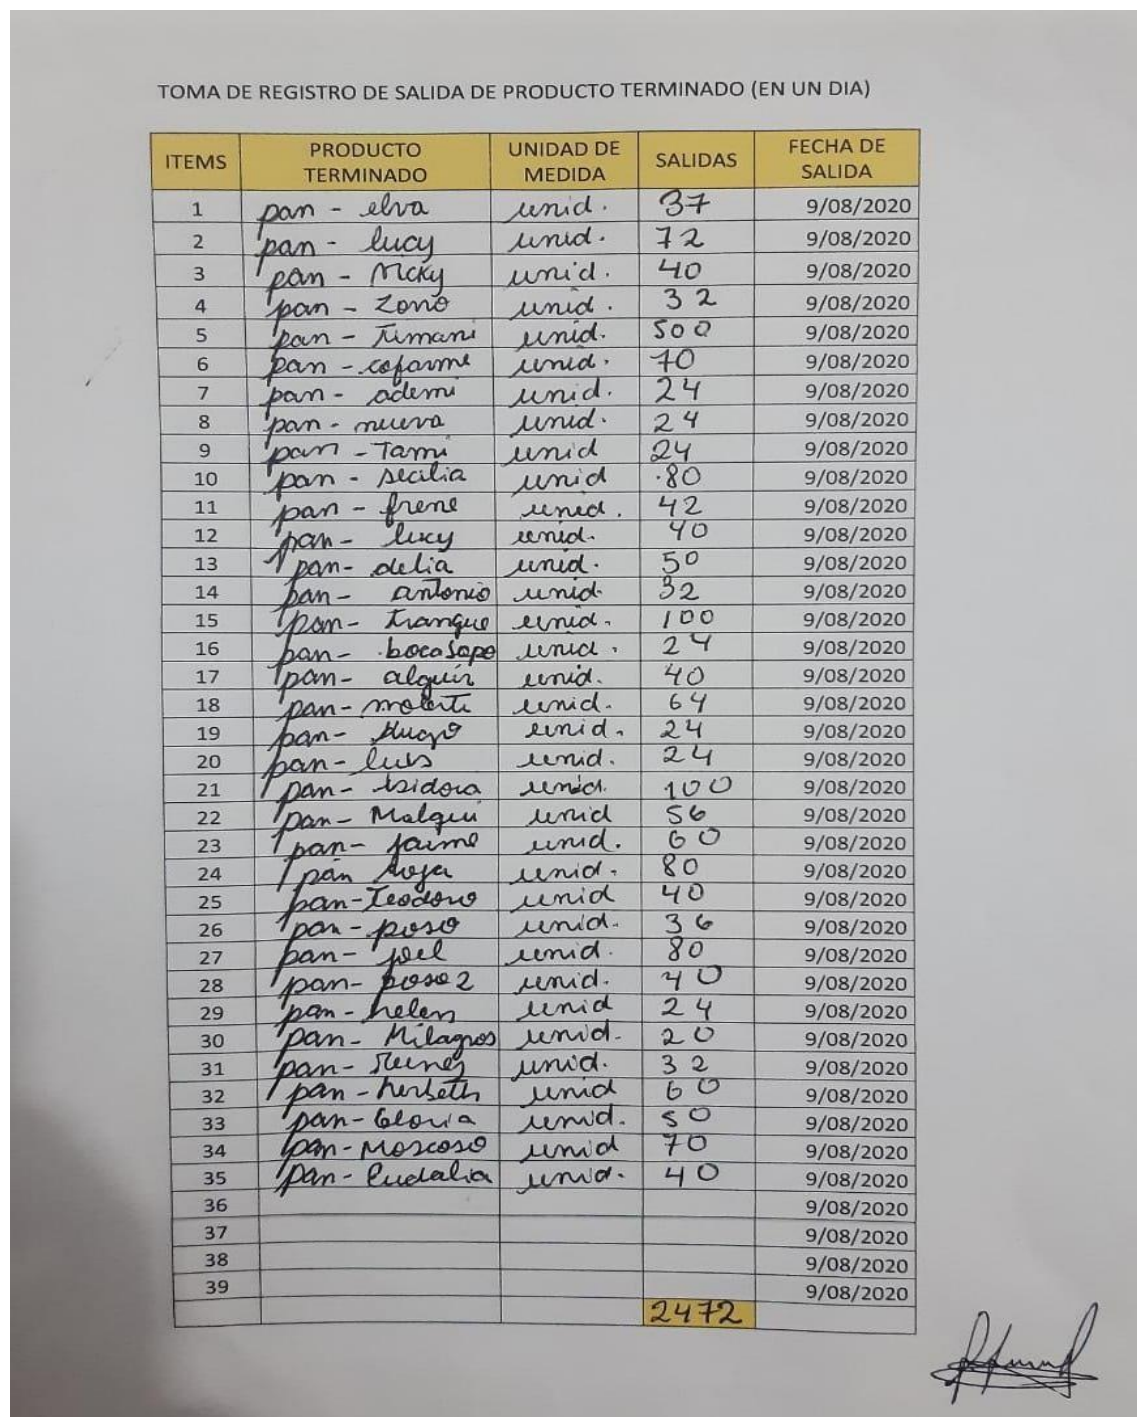 TOMA DE REGISTRO DE SALIDA DE PRODUCTO TERMINADO (EN UN DIA)
ITEMS PRODUCTO TERMINADO UNIDAD DE MEDIDA SALIDAS FECHA DE SALIDA
1 pan - elva unid. 37 9/08/2020
2 pan - lucy unid. 72 9/08/2020
3 pan - unid. 40 9/08/2020
4 pan - Zono unid. 32 9/08/2020
5 pan - Timani unid. 500 9/08/2020
6 pan - cofarme unid. 70 9/08/2020
7 pan - ademi unid. 24 9/08/2020
8 pan - nueva unid. 24 9/08/2020
9 pan - Tami unid 24 9/08/2020
10 pan - secilia unid 80 9/08/2020
11 pan - frene unid. 42 9/08/2020
12 pan - lucy unid. 40 9/08/2020
13 pan - delia unid. 50 9/08/2020
14 pan - antonio unid. 32 9/08/2020
15 pan - tranque unid. 100 9/08/2020
16 pan - bocasapo unid. 24 9/08/2020
17 pan - alguin unid. 40 9/08/2020
18 pan - unid. 64 9/08/2020
19 pan - Hugo unid. 24 9/08/2020
20 pan - luis unid. 24 9/08/2020
21 pan - Isidora unid. 100 9/08/2020
22 pan - Malqui unid 56 9/08/2020
23 pan - jaime unid. 60 9/08/2020
24 pan unid. 80 9/08/2020
25 pan - Teodoro unid 40 9/08/2020
26 pan - poso unid. 36 9/08/2020
27 pan - joel unid. 80 9/08/2020
28 pan - poso 2 unid. 40 9/08/2020
29 pan - helen unid 24 9/08/2020
30 pan - Milagros unid. 20 9/08/2020
31 pan - unid. 32 9/08/2020
32 pan - herbeth unid 60 9/08/2020
33 pan - Gloria unid. 50 9/08/2020
34 pan - Moscoso unid 70 9/08/2020
35 pan - Eudalia unid. 40 9/08/2020
36 9/08/2020
37 9/08/2020
38 9/08/2020
39 9/08/2020
2472